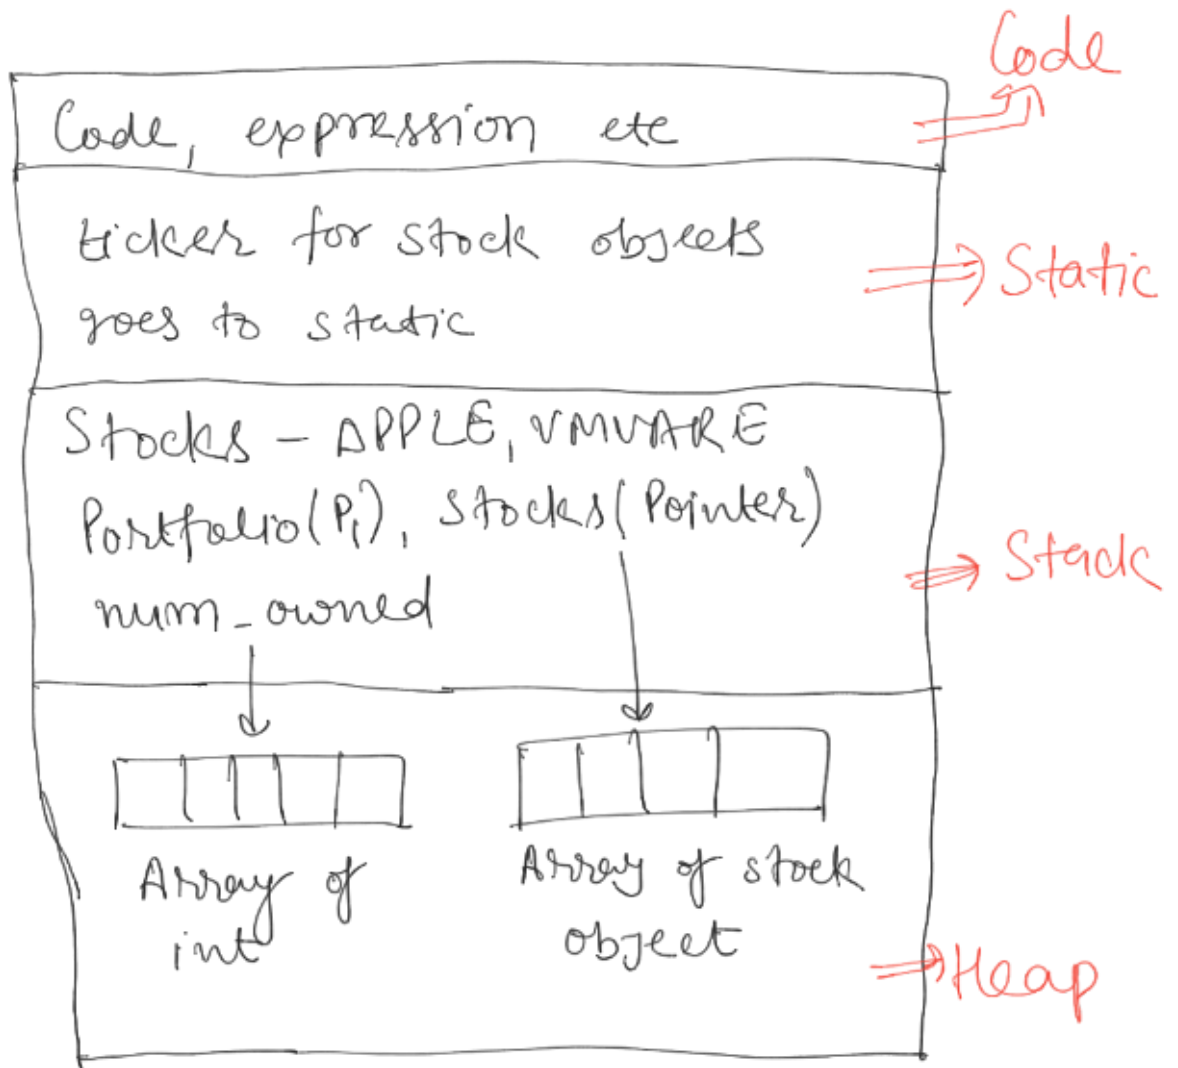 Code
Code, expression etc
ticker for stock objects
goes to static
Static
Stocks - APPLE, VMVARE
Portfolio(P1), stocks(Pointer)
num_owned
Stack
Array of
int
Array of stock
object
Heap